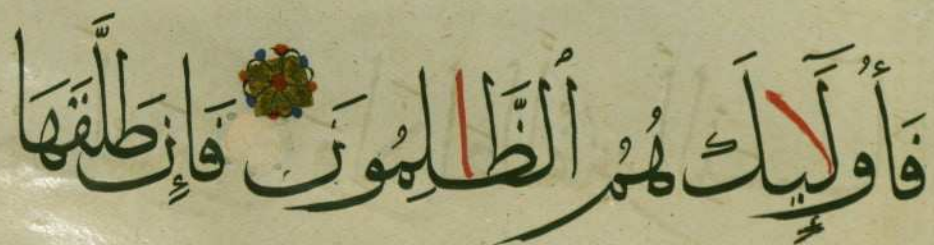 فَأُولَٰئِكَ هُمُ ٱلظَّالِمُونَ فَإِن طَلَّقَهَا